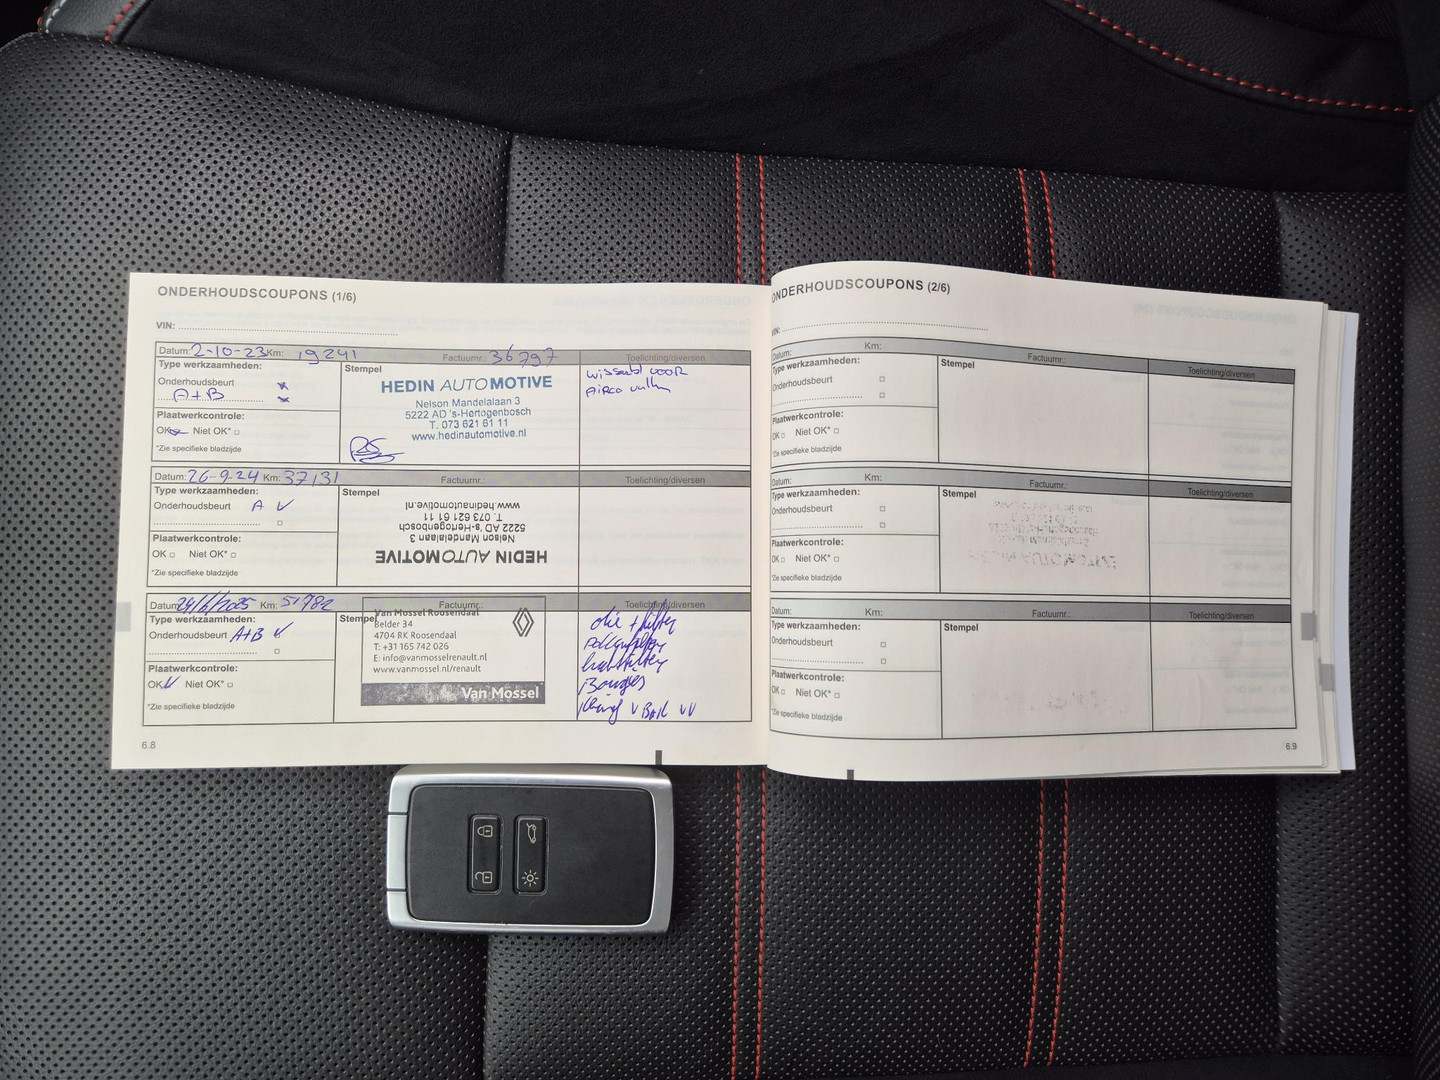 ONDERHOUDSCOUPONS (1/6)
VIN:
Datum: 2-10-23 Km: 19241 Factuurnr.: 36797 Toelichting/diversen
Type werkzaamheden:
Onderhoudsbeurt
A+B
Plaatwerkcontrole:
OK Niet OK*
*Zie specifieke bladzijde
Stempel
HEDIN AUTOMOTIVE
Nelson Mandelalaan 3
5222 AD 's-Hertogenbosch
T. 073 621 61 11
www.hedinautomotive.nl
voor
Airco
Datum: 26-9-24 Km: 37131 Factuurnr.: Toelichting/diversen
Type werkzaamheden:
Onderhoudsbeurt A
Plaatwerkcontrole:
OK Niet OK*
*Zie specifieke bladzijde
Stempel
HEDIN AUTOMOTIVE
Nelson Mandelalaan 3
5222 AD 's-Hertogenbosch
T. 073 621 61 11
www.hedinautomotive.nl
Datum: 24/6/2025 Km: 51782 Factuurnr.: Toelichting/diversen
Type werkzaamheden:
Onderhoudsbeurt A+B
Plaatwerkcontrole:
OK Niet OK*
*Zie specifieke bladzijde
Stempel
Van Mossel Roosendaal
Belder 34
4704 RK Roosendaal
T: +31 165 742 026
E: info@vanmosselrenault.nl
www.vanmossel.nl/renault
Van Mossel
olie + filter
pollenfilter
Bougies
6.8
ONDERHOUDSCOUPONS (2/6)
VIN:
Datum: Km: Factuurnr.: Toelichting/diversen
Type werkzaamheden:
Onderhoudsbeurt
Plaatwerkcontrole:
OK Niet OK*
*Zie specifieke bladzijde
Stempel
Datum: Km: Factuurnr.: Toelichting/diversen
Type werkzaamheden:
Onderhoudsbeurt
Plaatwerkcontrole:
OK Niet OK*
*Zie specifieke bladzijde
Stempel
Datum: Km: Factuurnr.: Toelichting/diversen
Type werkzaamheden:
Onderhoudsbeurt
Plaatwerkcontrole:
OK Niet OK*
*Zie specifieke bladzijde
Stempel
6.9